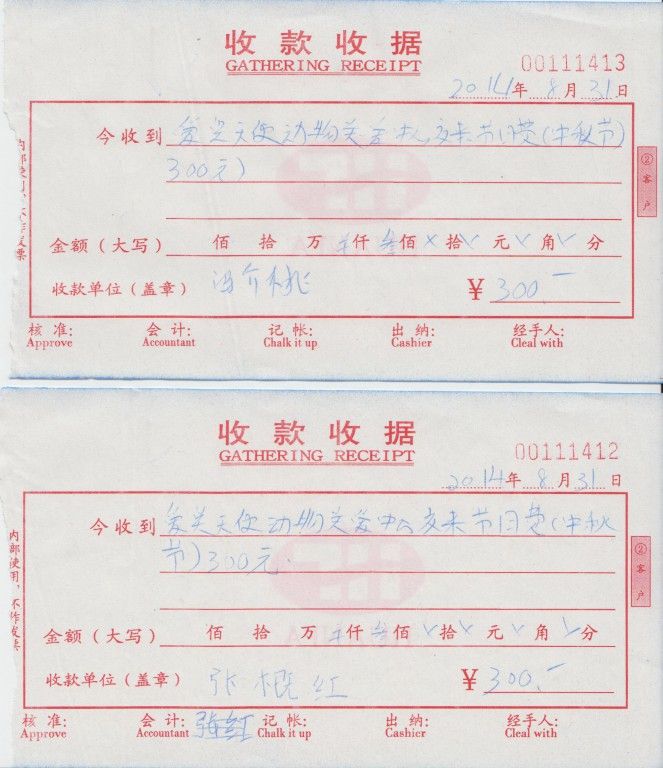 收款收据
GATHERING RECEIPT
00111413
2014年 8月 31日
今收到 爱关天使动物关爱中心交来节日费(中秋节)
300元)
②客户
内部使用,不作发票
金额(大写) 佰 拾 万 仟 叁佰 拾 元 角 分
收款单位(盖章) 冯介桃 ¥ 300.—
核准: 会计: 记帐: 出纳: 经手人:
Approve Accountant Chalk it up Cashier Cleal with
收款收据
GATHERING RECEIPT
00111412
2014年 8月 31日
今收到 爱关天使动物关爱中心交来节日费(中秋
节)300元.
②客户
内部使用,不作发票
金额(大写) 佰 拾 万 仟 叁佰 拾 元 角 分
收款单位(盖章) 张根红 ¥ 300.—
核准: 会计: 记帐: 出纳: 经手人:
Approve Accountant Chalk it up Cashier Cleal with